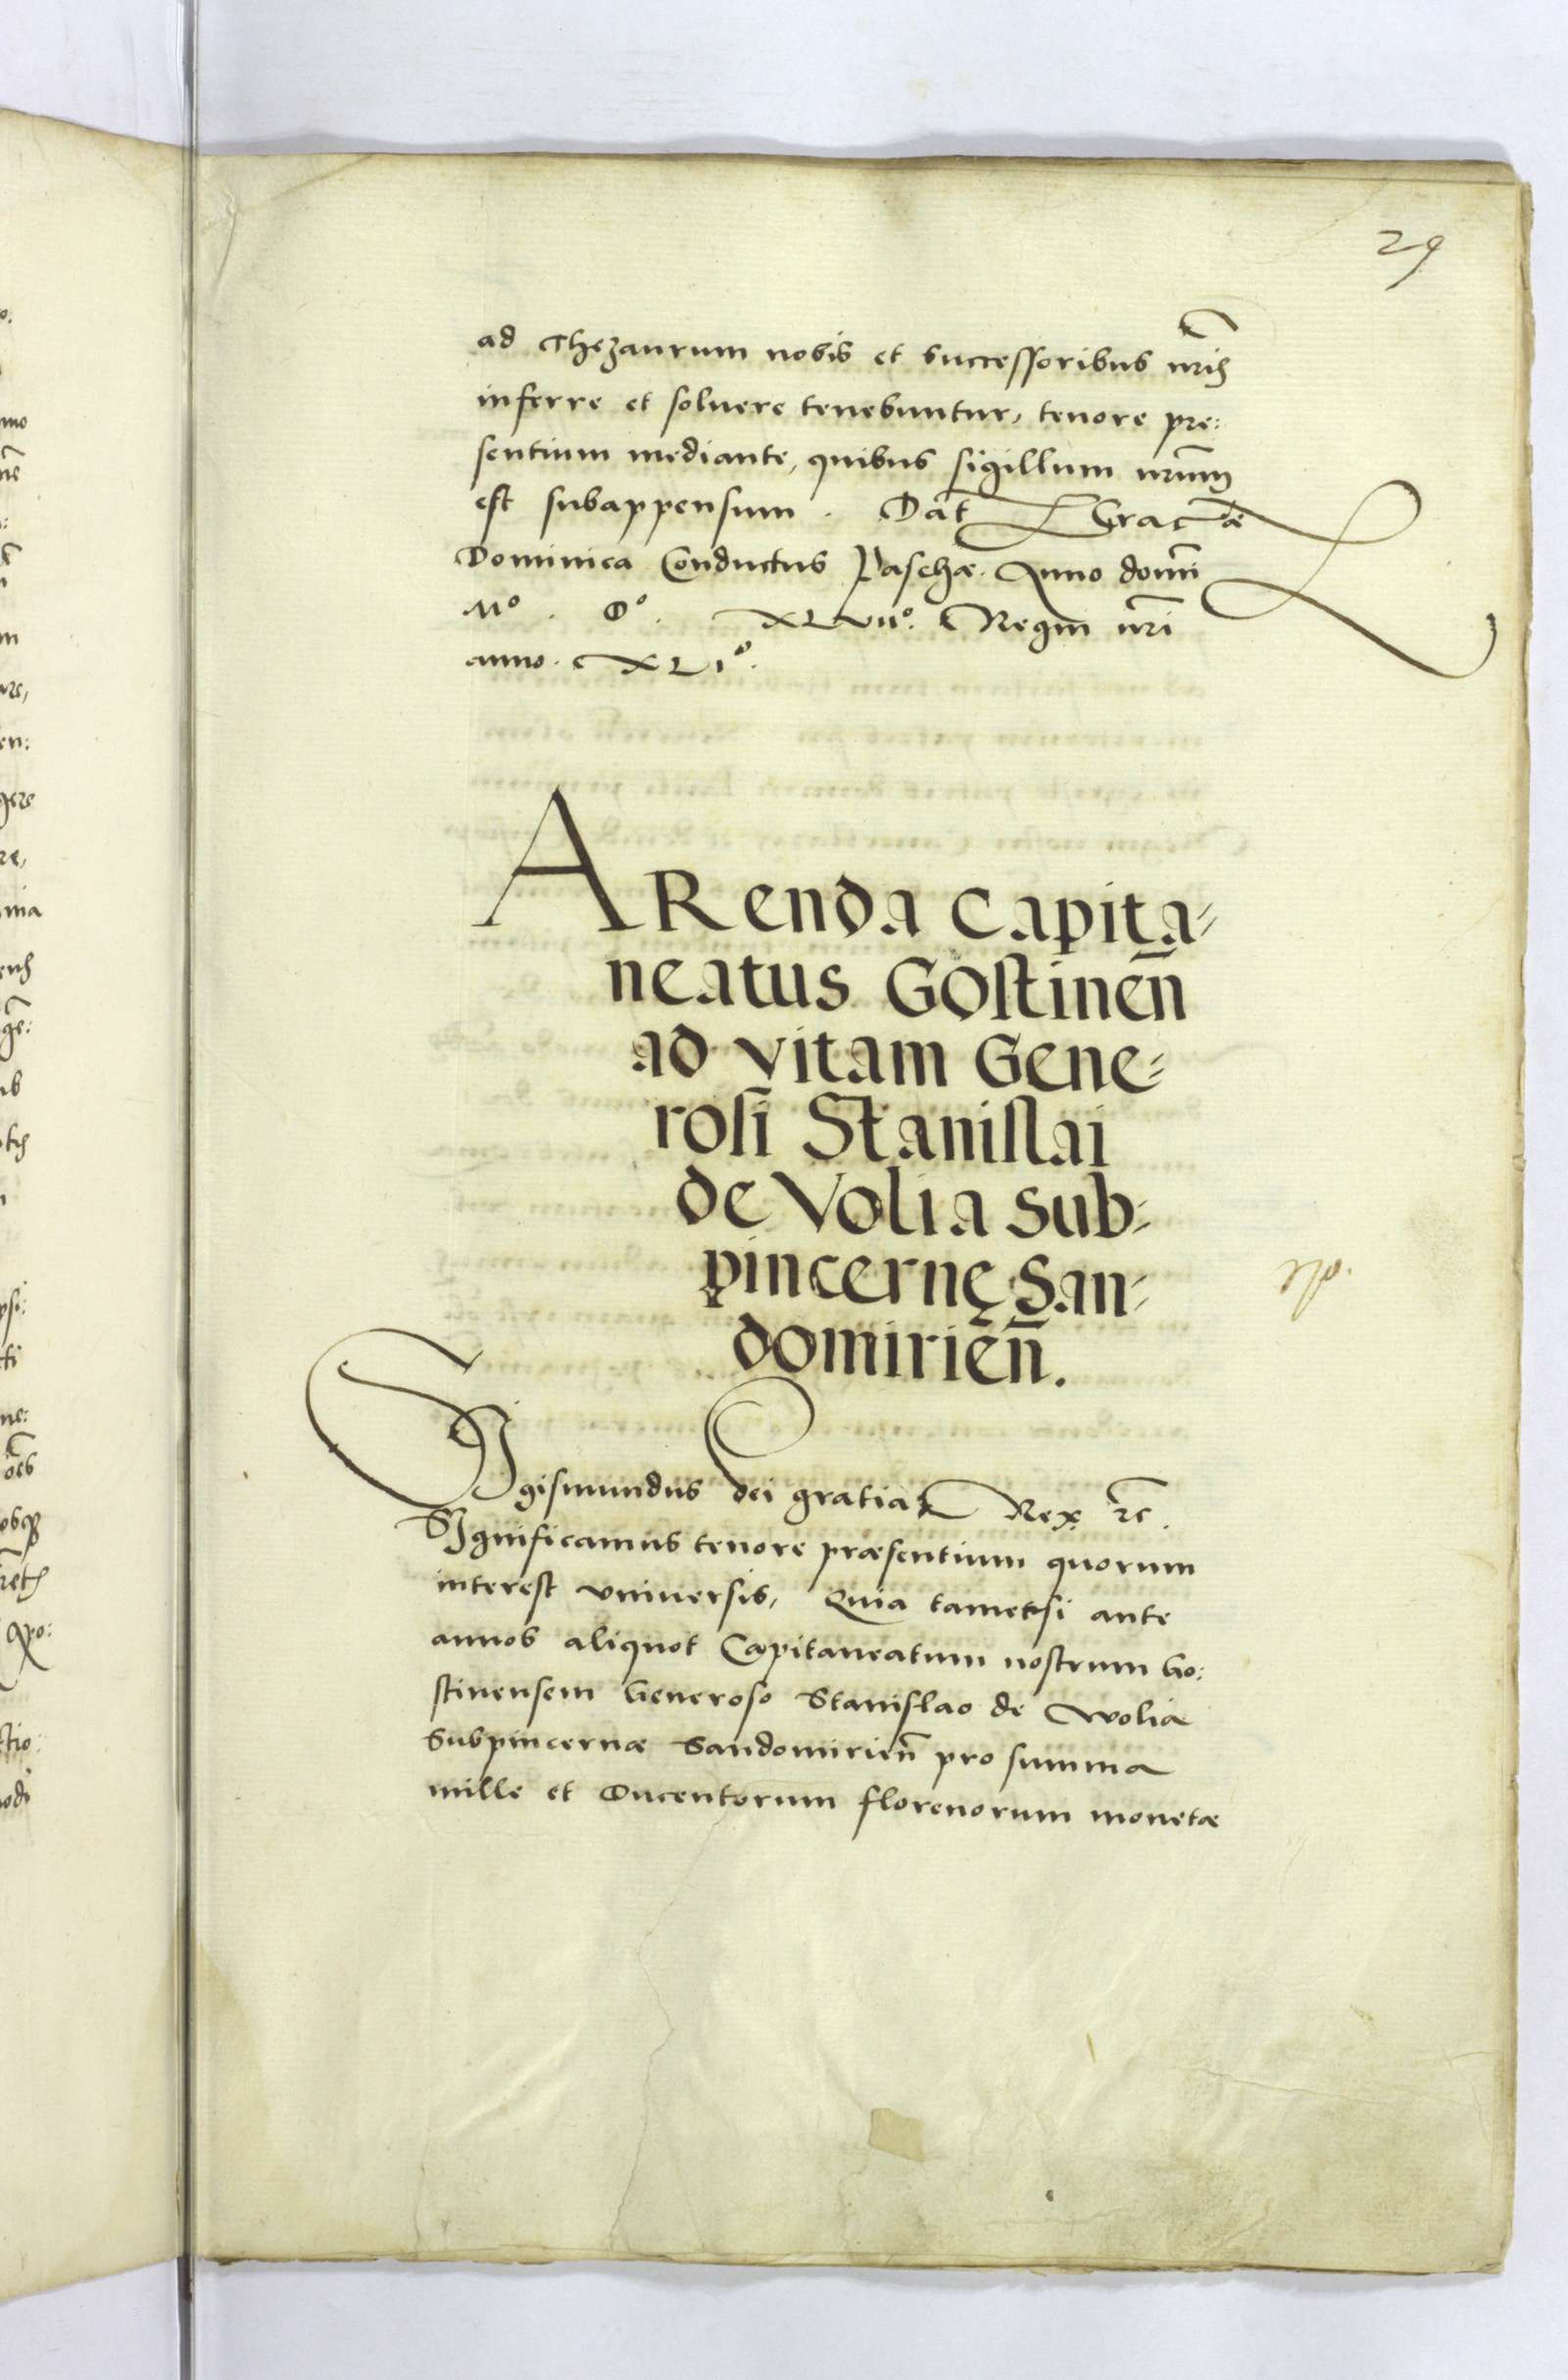 29
ad Thezaurum nobis et successoribus nris
inferre et soluere tenebuntur, tenore pre:
sentium mediante, quibus sigillum nrum
est subappensum. Dat Cracoviæ
Dominica Conductus Paschæ. Anno domi
Mº. Dº. XLVIIº. Regni nri
anno. XLIº.
ARenda Capita=
neatus Gostinen̄
ad vitam Gene=
rosi Stanislai
de Volia Sub=
pincernę San=
domirien̄.
SIgismundus dei gratia Rex &c.
Significamus tenore præsentium quorum
interest vniuersis, Quia tametsi ante
annos aliquot Capitaneatum nostrum Go:
stinensem Generoso Stanislao de Wolia
Subpincernæ Sandomirien̄ pro summa
mille et Ducentorum florenorum monetæ